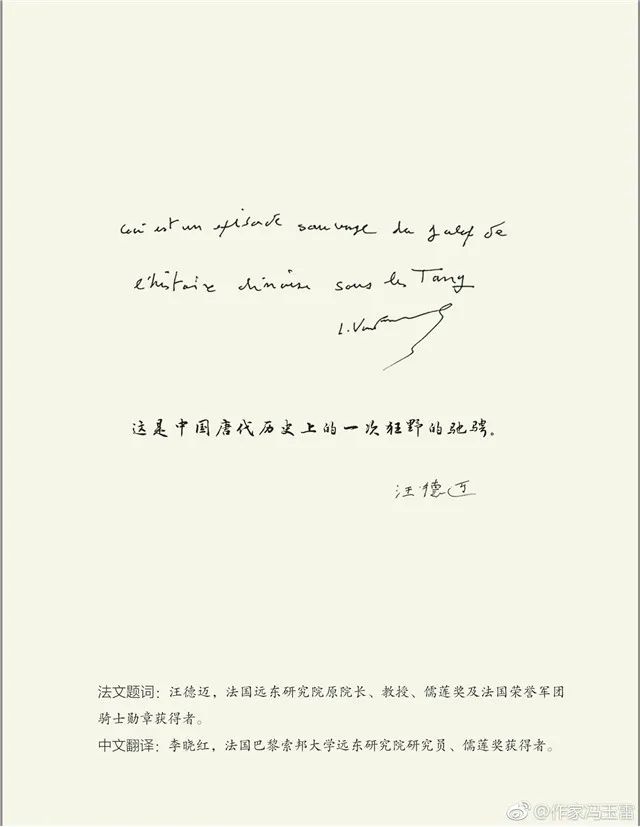 Ceci est un épisode sauvage du galop de
l'histoire chinoise sous les Tang
这是中国唐代历史上的一次狂野的驰骋。
汪德迈
法文题词：汪德迈，法国远东研究院原院长、教授、儒莲奖及法国荣誉军团
骑士勋章获得者。
中文翻译：李晓红，法国巴黎索邦大学远东研究院研究员、儒莲奖获得者。
@作家冯玉雷